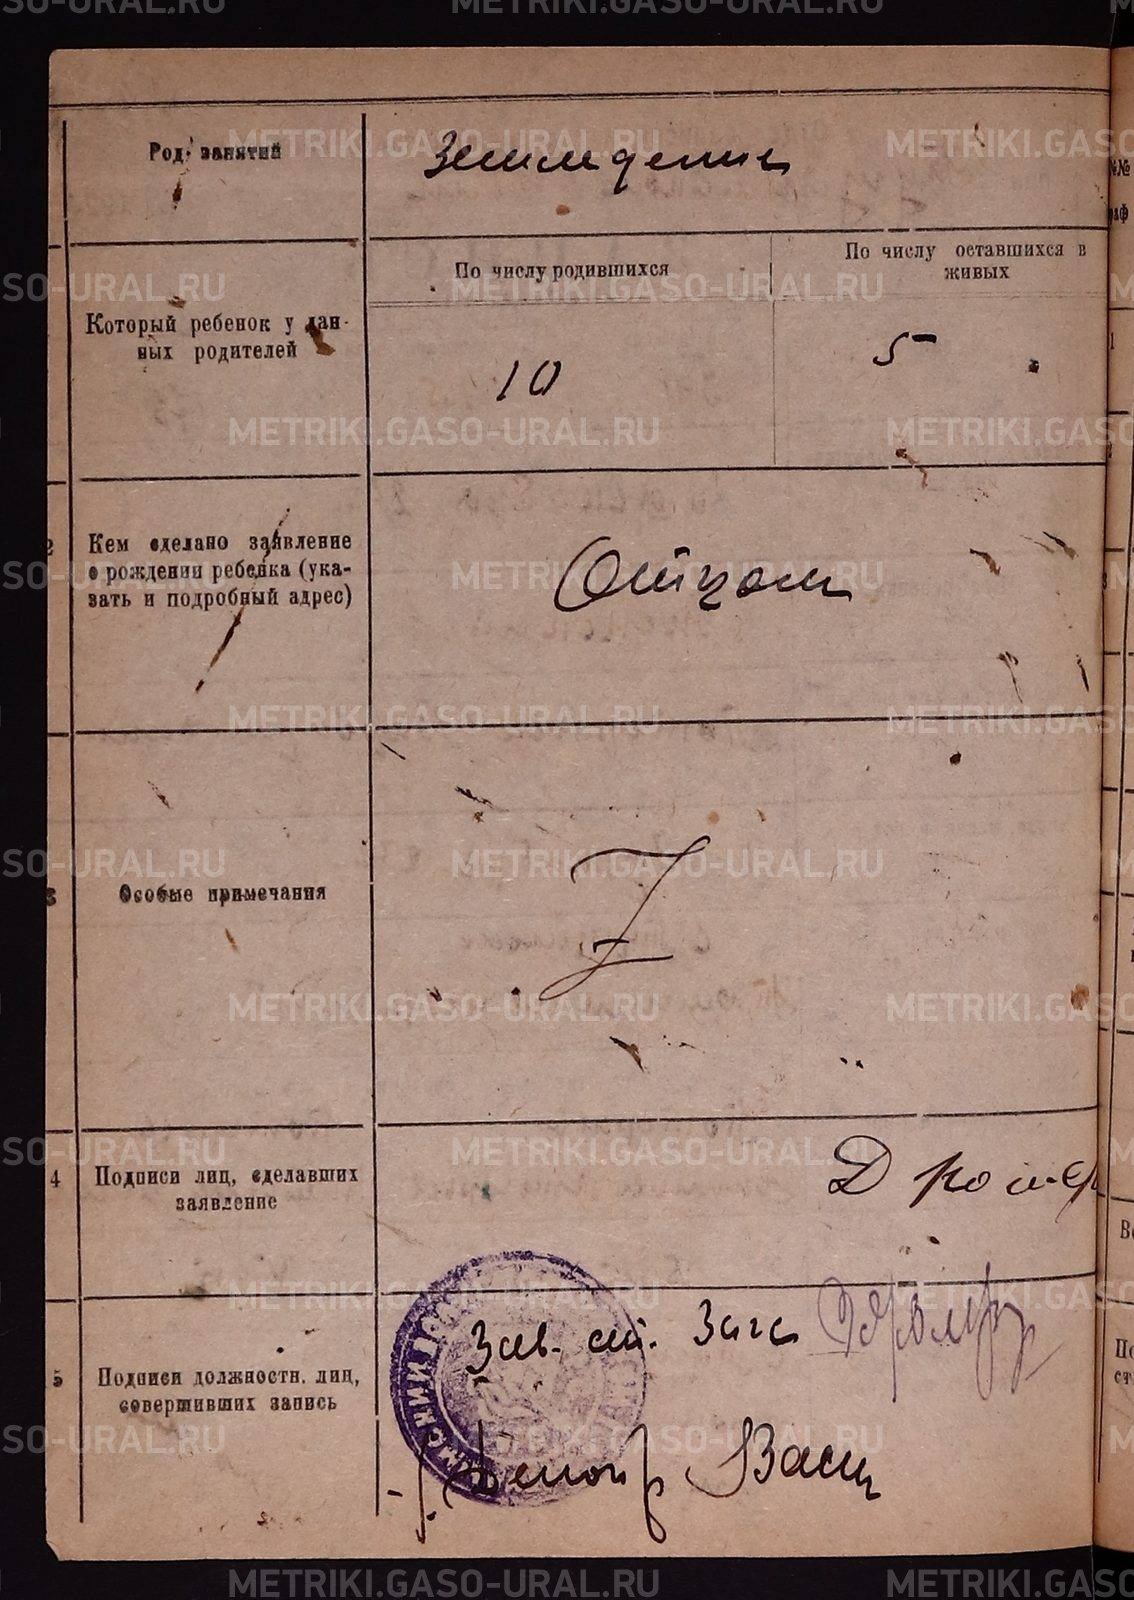 Род занятий
Земледелие
Который ребенок у дан-
ных родителей
По числу родившихся
По числу оставшихся в
живых
10
5
Кем сделано заявление
о рождении ребенка (ука-
зать и подробный адрес)
Отцом
Особые примечания
Z
4
Подписи лиц, сделавших
заявление
5
Подписи должностн. лиц,
совершивших запись
Зав. ст. Загс
METRIKI.GASO-URAL.RU